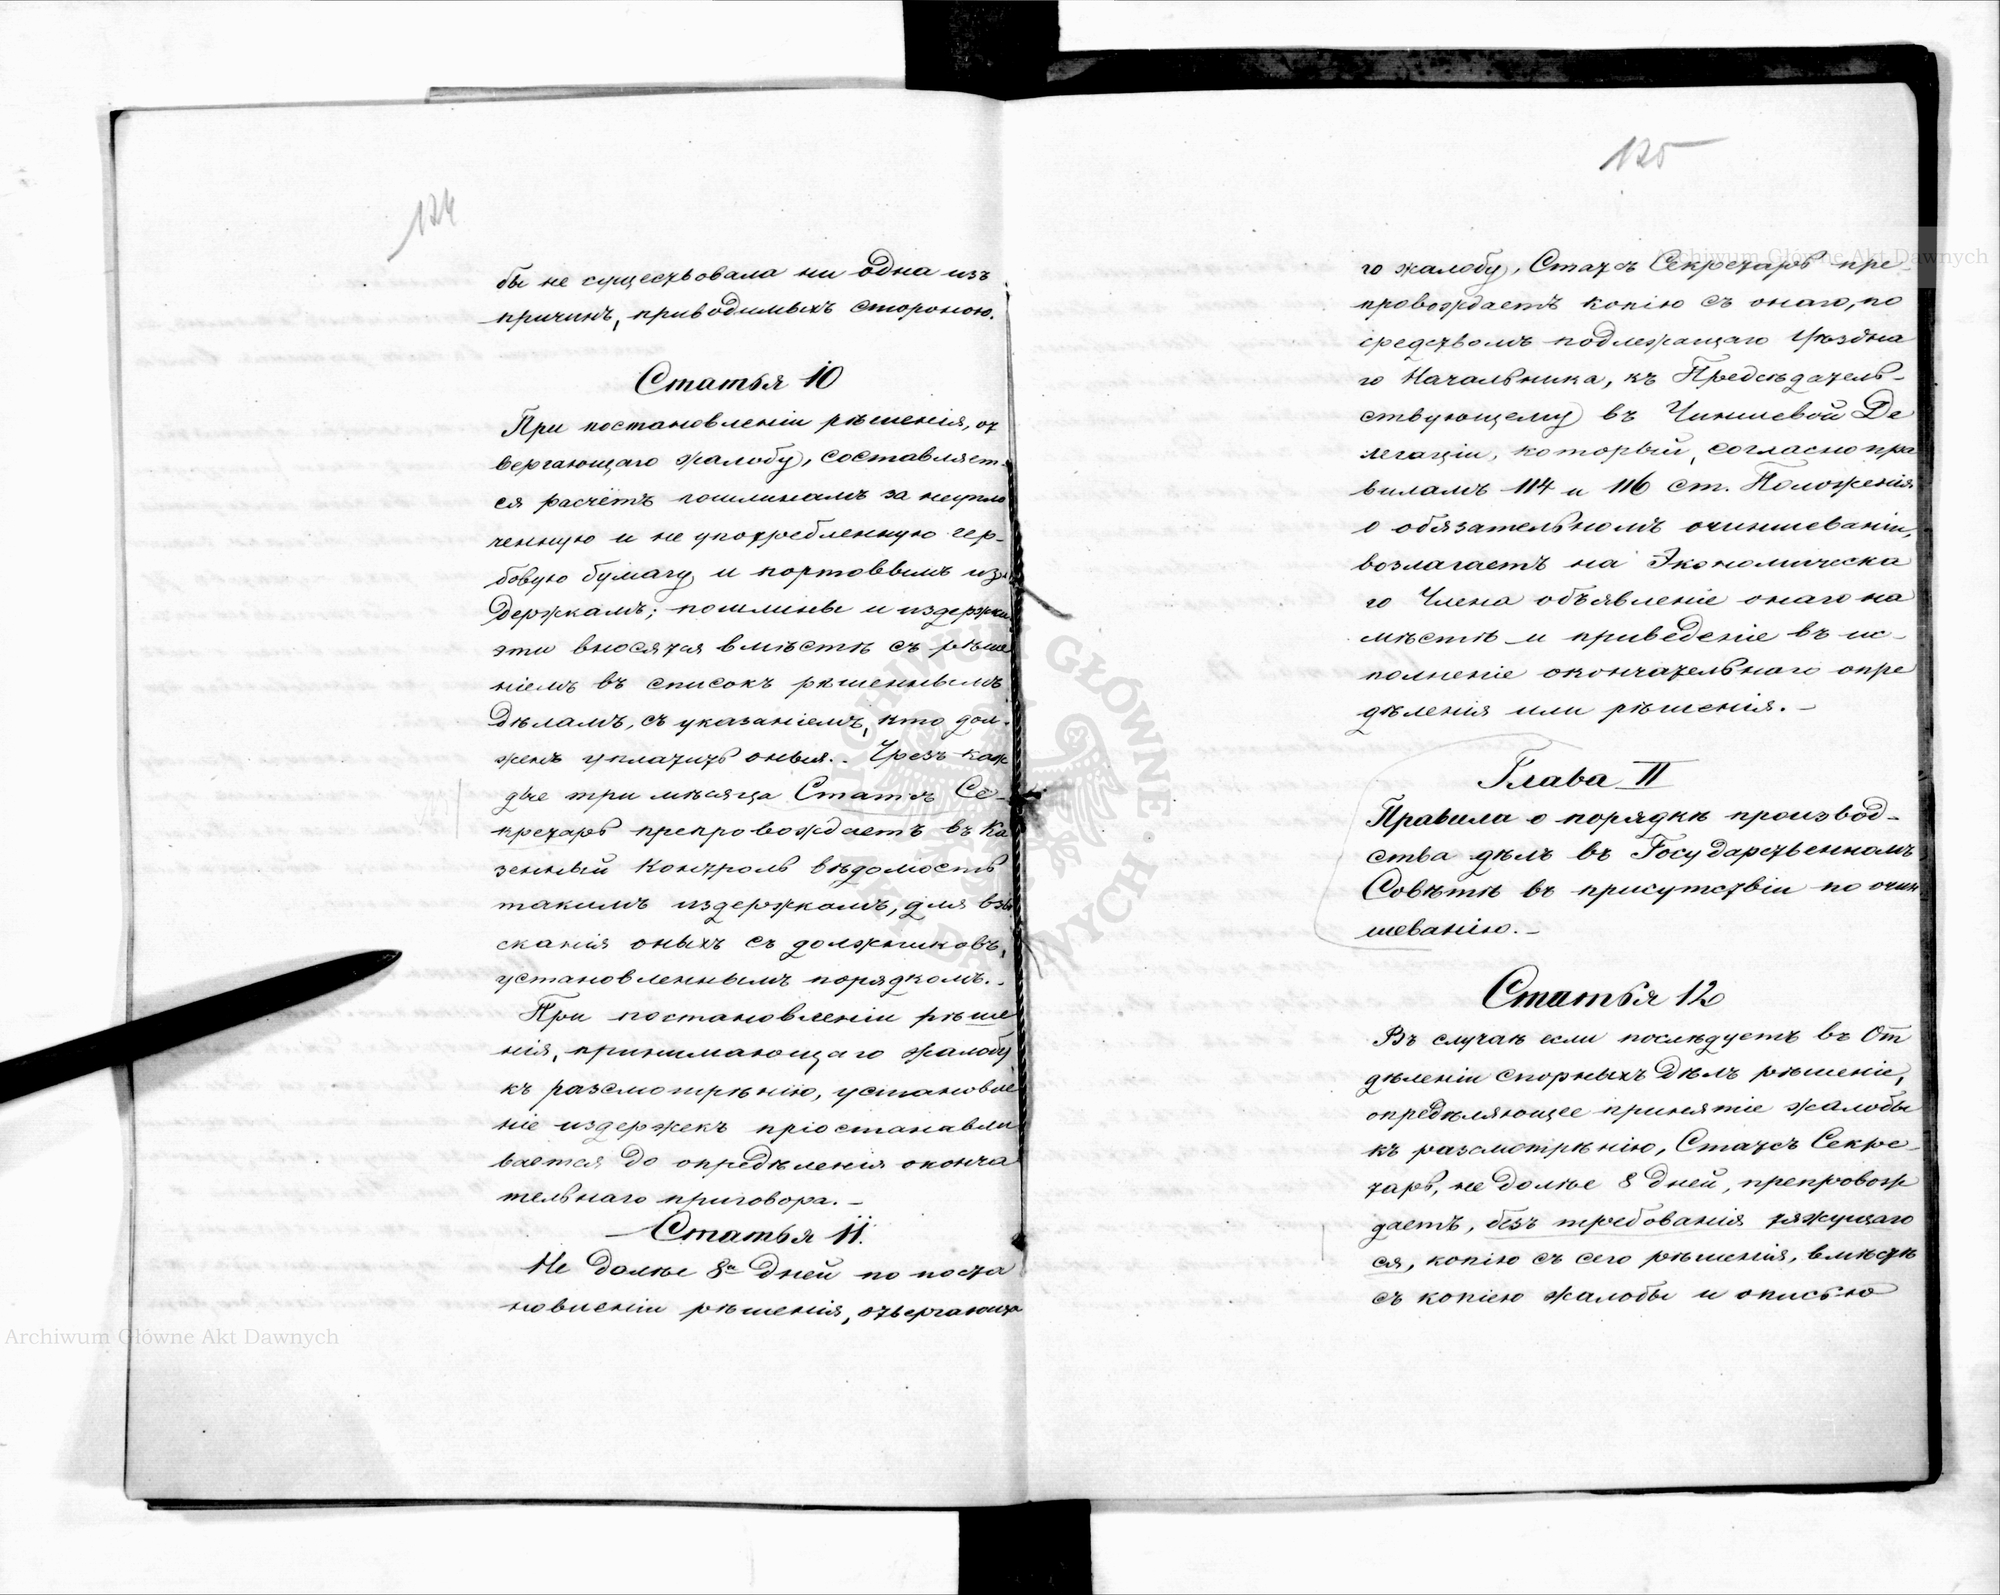 124
бы не существовала ни одна изъ
причинъ, приводимыхъ стороною.
Статья 10
При постановленіи рѣшенія, от
вергающаго жалобу, составляет-
ся расчётъ пошлинамъ за неупло
ченную и не употребленную гер-
бовую бумагу и портовымъ из
держкамъ; пошлины и издержки
эти вносятся вмѣстѣ съ рѣше
ніемъ въ списокъ рѣшеннымъ
дѣламъ, съ указаніемъ, кто дол-
женъ уплатить оныя. Чрезъ каж
дые три мѣсяца Статсъ Се-
кретарь препровождаетъ въ Ка
зенный Контроль вѣдомость
такимъ издержкамъ, для взы
сканія оныхъ съ должниковъ,
установленнымъ порядкомъ.-
При постановленіи рѣше
нія, принимающаго жалобу
къ разсмотрѣнію, установле
ніе издержекъ пріостанавли
вается до опредѣленія оконча
тельнаго приговора. -
Статья 11.
Не долѣе 8и дней по поста
новленіи рѣшенія, отвергающа
125
го жалобу, Статсъ Секретарь пре-
провождаетъ копію съ онаго, по
средствомъ подлежащаго Уѣздна
го Начальника, къ Предсѣдатель-
ствующему въ Чиншевой Де
легаціи, который, согласно пра
виламъ 114 и 116 ст. Положенія
о обязательномъ очиншеваніи,
возлагаетъ на Экономическа
го Члена объявленіе онаго на
мѣстѣ и приведеніе въ ис-
полненіе окончательнаго опре
дѣленія или рѣшенія. -
Глава II
Правила о порядкѣ производ-
ства дѣлъ въ Государственномъ
Совѣтѣ въ присутствіи по очин
шеванію. -
Статья 12
Въ случаѣ если послѣдуетъ въ От
дѣленіи спорныхъ дѣлъ рѣшеніе,
опредѣляющее принятіе жалобы
къ разсмотрѣнію, Статсъ Секре-
тарь, не долѣе 8 дней, препровож
даетъ, безъ требованія тяжущаго
ся, копію съ сего рѣшенія, вмѣстѣ
съ копіею жалобы и описью
Archiwum Główne Akt Dawnych
Archiwum Główne Akt Dawnych